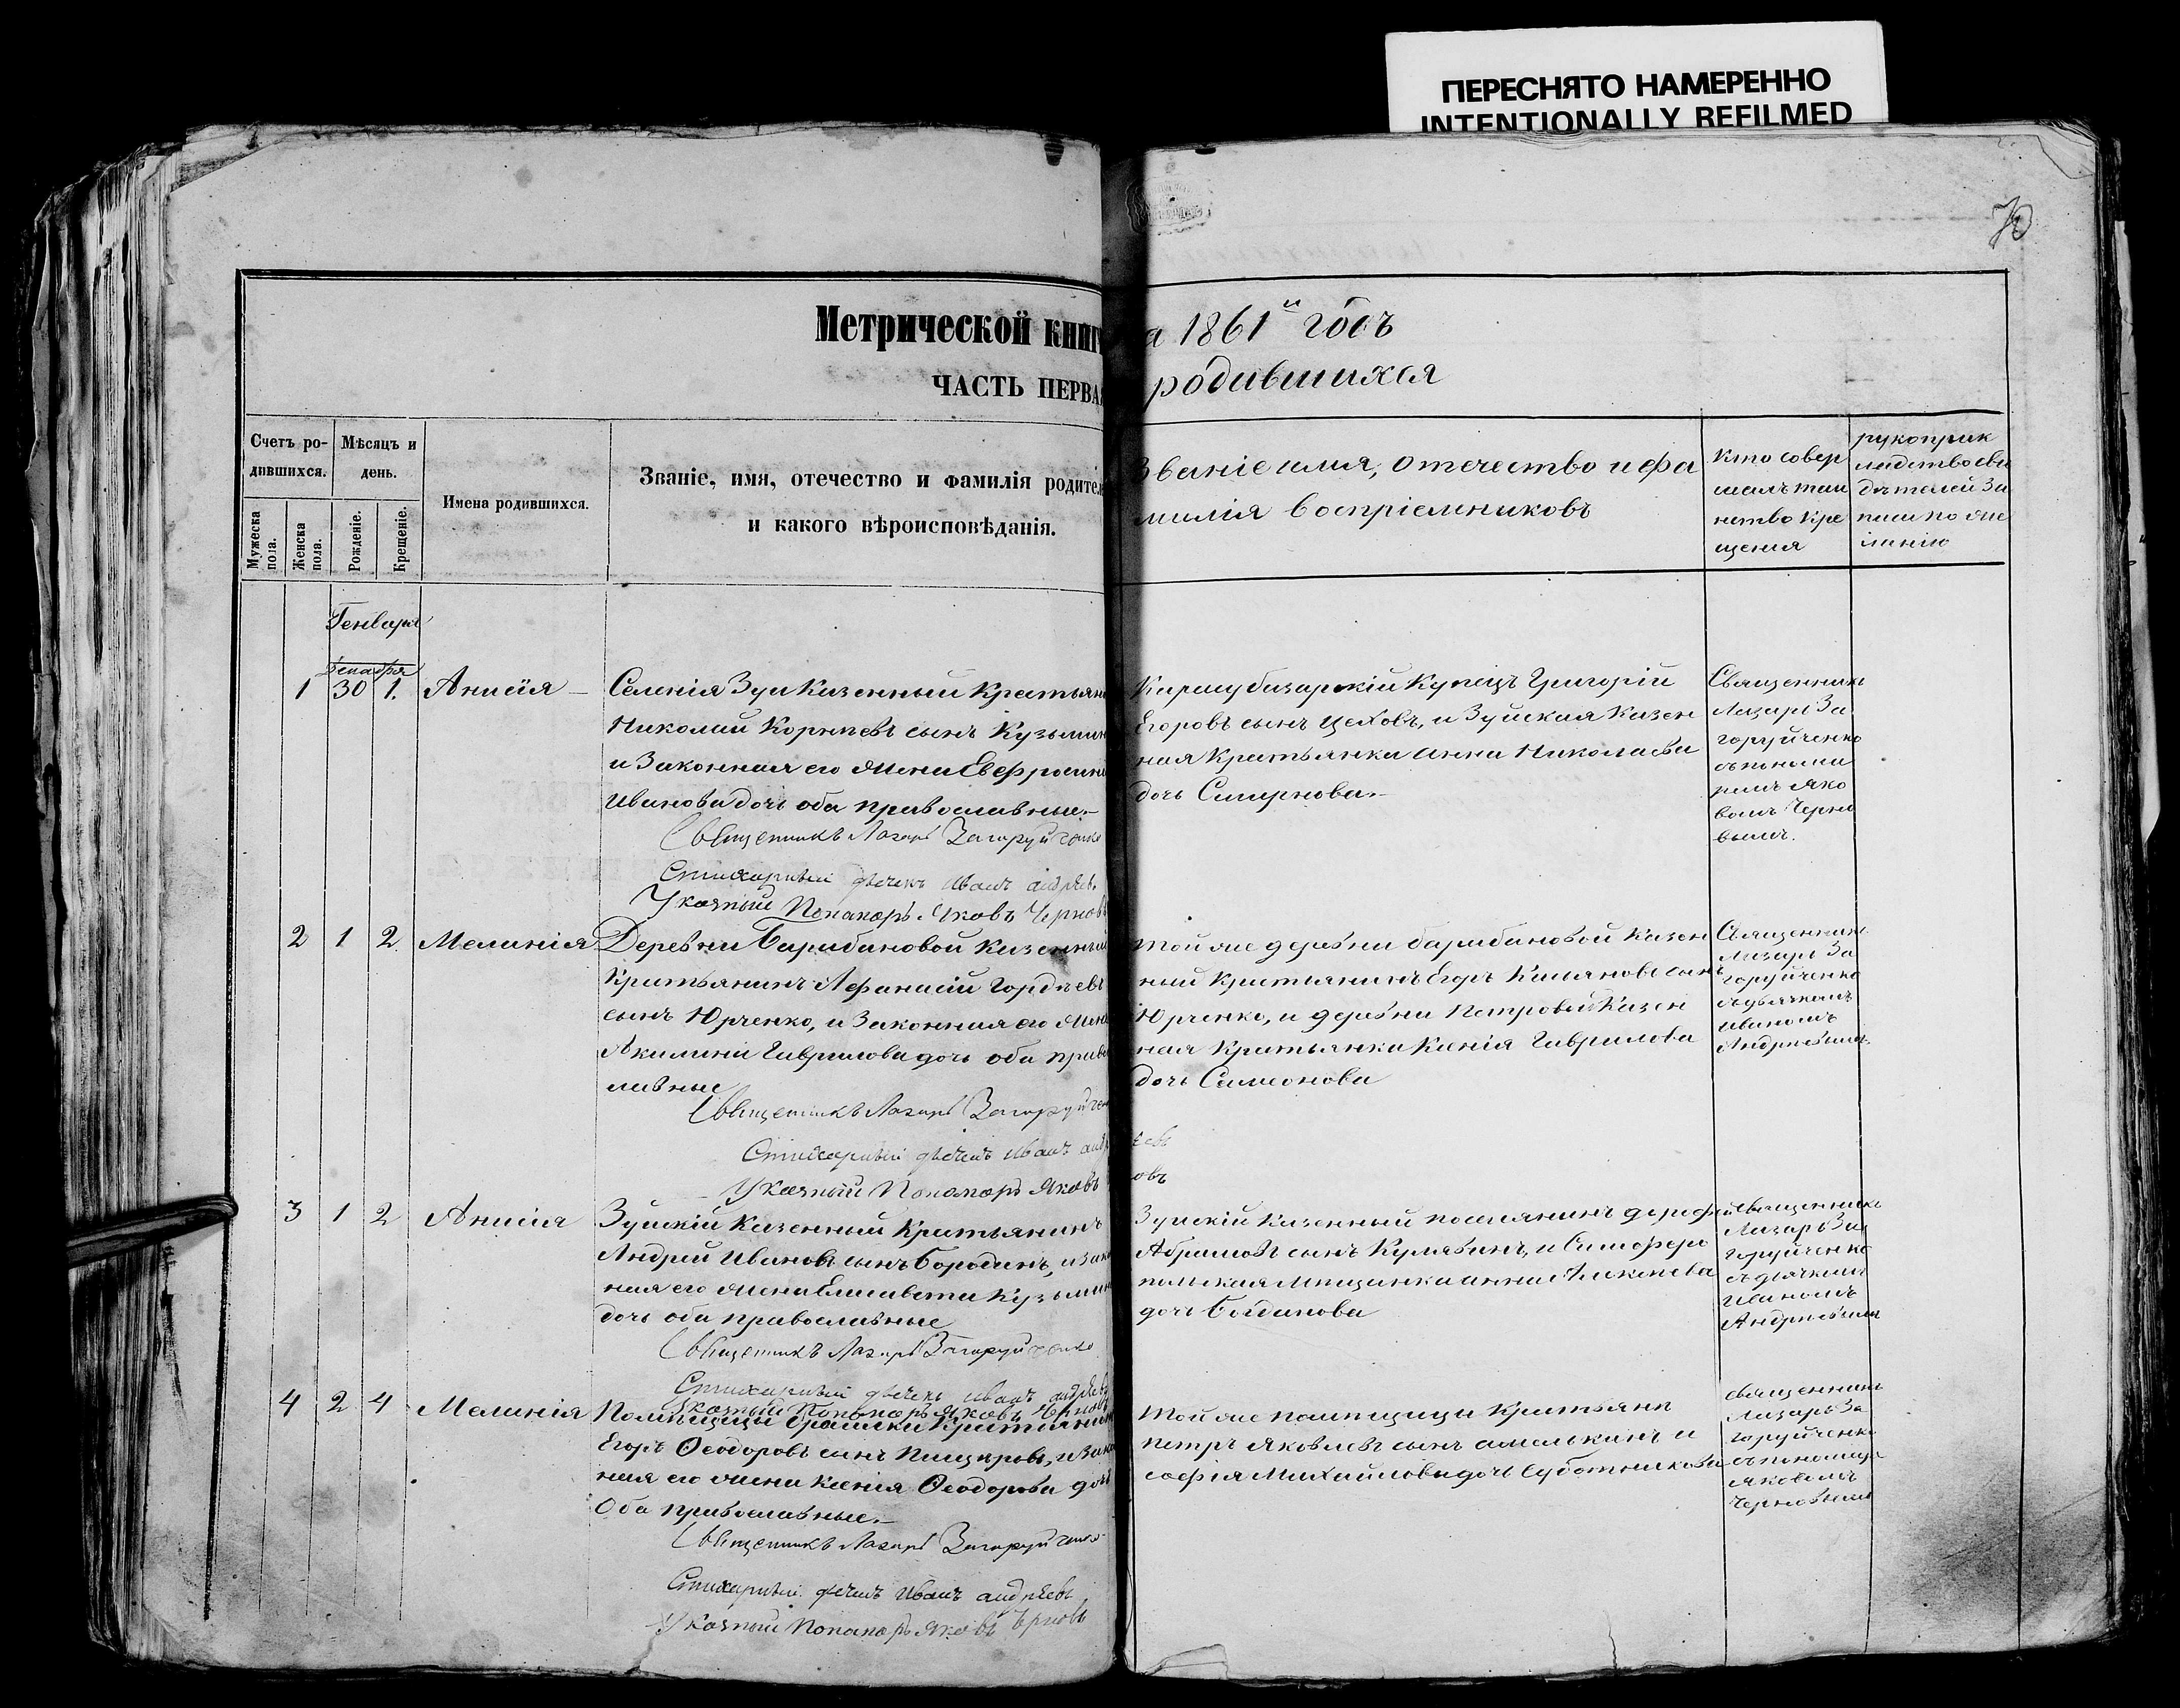 ПЕРЕСНЯТО НАМЕРЕННО
INTENTIONALLY REFILMED
70
Метрической книг
ЧАСТЬ ПЕРВА
а 1861й годъ
родившихся
Счетъ ро-
дившихся.
Мѣсяцъ и
день.
Мужеска
пола.
Женска
пола.
Рожденіе.
Крещеніе.
Имена родившихся.
Званіе, имя, отечество и фамилія родител
и какого вѣроисповѣданія.
Званіе имя, отечество и фа
милія воспріемниковъ
Кто совер
шалъ таи
нство кре
щенія
рукоприк
ладство сви
дѣтелей за
писи по же
ланію
Генваря
Декабря
1 30 1. Анисія
Селенія Зуи Казенный Крестьян
Николай Корнѣевъ сынъ Кузьмин
и Законная его жена Евфросин
Иванова дочь оба православные.
Священникъ Лазарь Загоруйченко
Стихарный дьячекъ Иванъ Андрѣевъ
Указный Пономарь Яковъ Черновъ
Карасубазарскій Купецъ Григорій
Егоровъ сынъ Цеховъ, и Зуйская Казен
ная Крестьянка Анна Николаева
дочь Смирнова.
Священникъ
Лазарь За
горуйченко
съ понома
ремъ Яко
вомъ Черно
вымъ.
2 1 2 Меланія
Деревни Барабановой Казенный
Крестьянинъ Афанасій Гордѣевъ
сынъ Юрченко, и Законная его жен
Акилина Гаврилова дочь оба право
лавные
Священникъ Лазарь Загоруйчен
Стихарный дьячекъ Иванъ Анд
Указный Пономарь Яковъ
ѣевъ
овъ
Той же деревни Барабановой Казен
ный Крестьянинъ Егоръ Касьяновъ сынъ
Юрченко, и деревни Петровой Казен
ная Крестьянка Ксенія Гаврилова
дочь Симонова
Священникъ
Лазарь За
горуйченко
съ дьячкомъ
Иваномъ
Андреевымъ.
3 1 2 Анисія
Зуйскій Казенный Крестьянинъ
Андрей Ивановъ сынъ Бородинъ, и Зако
ная его жена Елисавета Кузьмин
дочь оба православные
Священникъ Лазарь Загоруйченко
Стихарный дьячекъ Иванъ Андрѣевъ
Указный Пономарь Яковъ Черновъ
Зуйскій Казенный поселянинъ
Абрамовъ сынъ и Симферо
польская Мѣщанка Анна Алексѣева
дочь Богданова
Священникъ
Лазарь За
горуйченко
съ дьячкомъ
Иваномъ
Андреевымъ
4 2 4 Меланія
Помѣщицы Крестьянин
Егоръ Ѳеодоровъ сынъ и Зако
ная его жена Ксенія Ѳеодорова дочь
Оба православные.
Священникъ Лазарь Загоруйченко
Стихарный дьячекъ Иванъ Андрѣевъ
Указный Пономарь Яковъ Черновъ
Той же помѣщицы Крестьяне
Петръ Яковлевъ сынъ и
Софія Михайлова дочь Суботникова
Священникъ
Лазарь За
горуйченко
съ пономаре
Яковомъ
Черновымъ